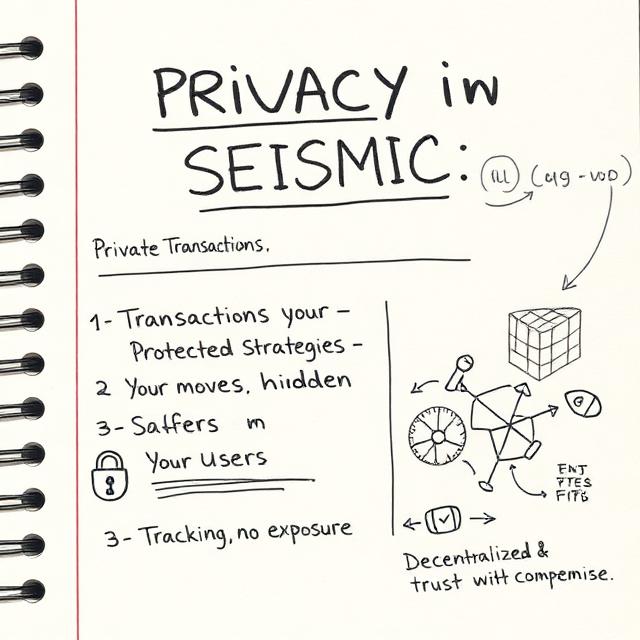 PRiVACY in
SEISMIC:
Private Transactions.
1- Transactions your –
Protected Strategies –
2 Your moves, hiidden
3- Saffers m
Your Users
3- Tracking, no exposure
Decentralized &
trust witt compemise.